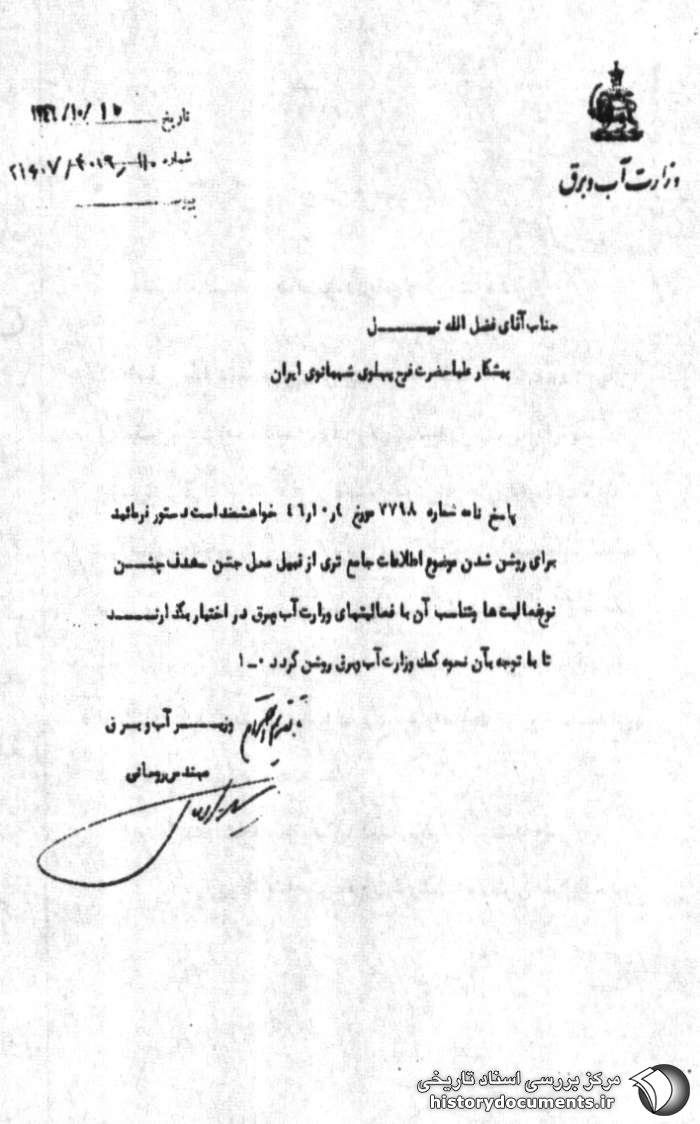 وزارت آب و برق
تاریخ ۱۳۴۶/۱۰/۱۵
شماره
جناب آقای فضل الله نبیـــــل
پیشکار علیاحضرت فرح پهلوی شهبانوی ایران
پاسخ نامه شماره ۷۷۹۸ مورخ ۴۶ر۱۰ر۴ خواهشمند است دستور فرمائید
برای روشن شدن موضوع اطلاعات جامع تری از قبیل محل جشن ـ هدف جشـــن
نوع فعالیت ها وتناسب آن با فعالیتهای وزارت آب وبرق در اختیار بگذارنـــــد
تا با توجه بآن نحوه کمک وزارت آب وبرق روشن گردد ۰ــ۱
با تقدیم احترام وزیـــــر آب و بـــرق
مهندس روحانی
مرکز بررسی اسناد تاریخی
historydocuments.ir